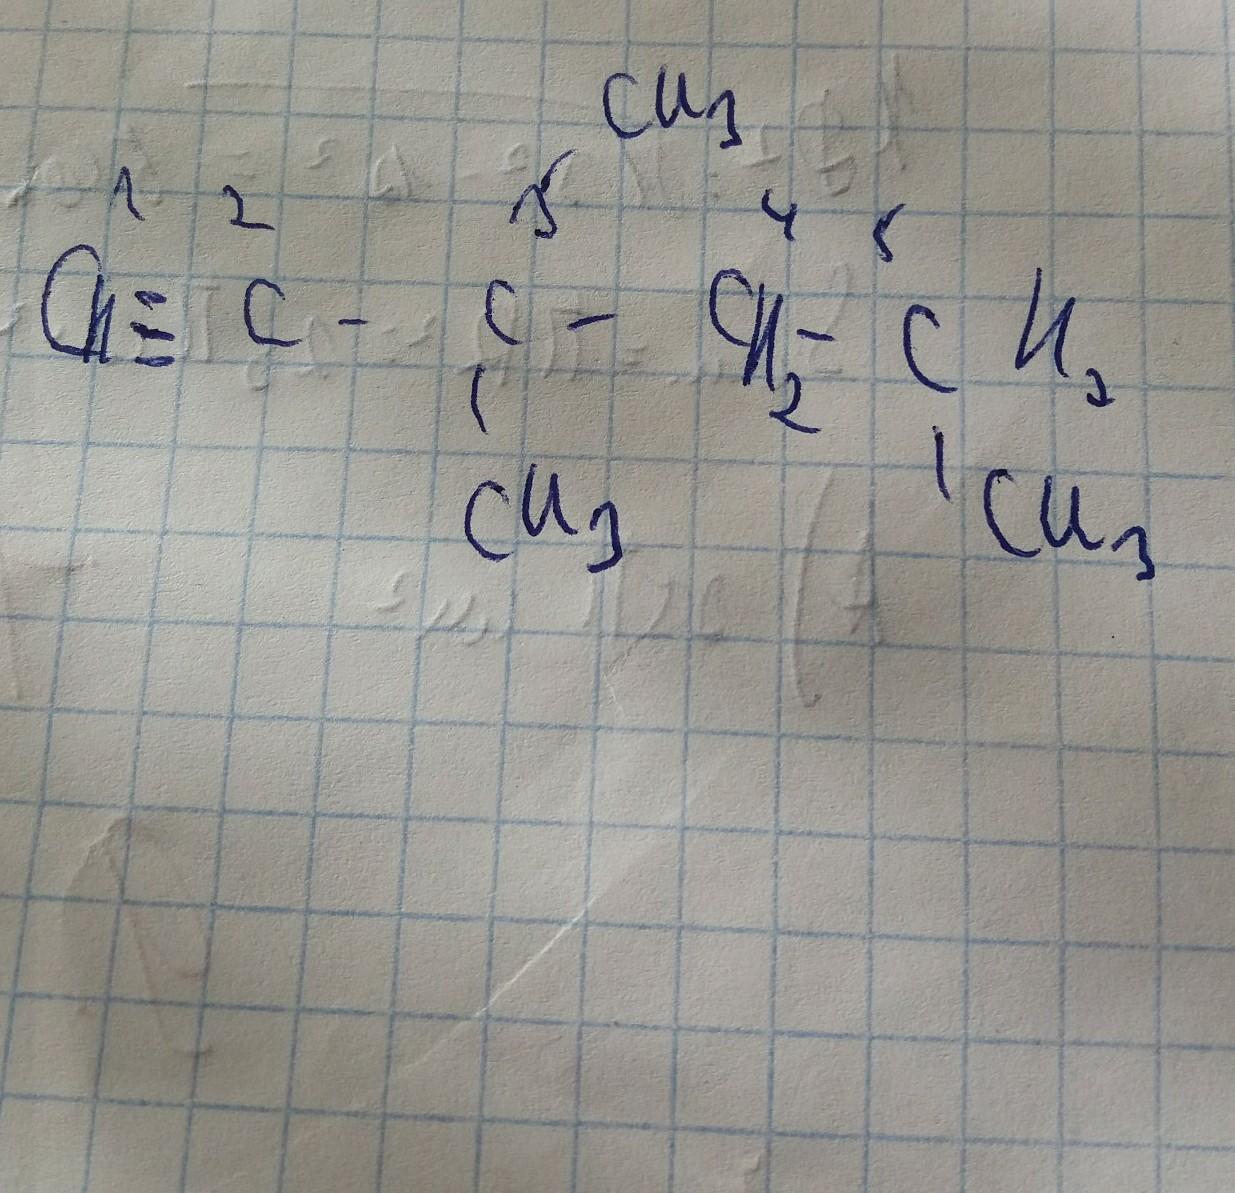 CH3
1 2 3 4 5
CH≡C-C-CH2-CH2
CH3 CH3